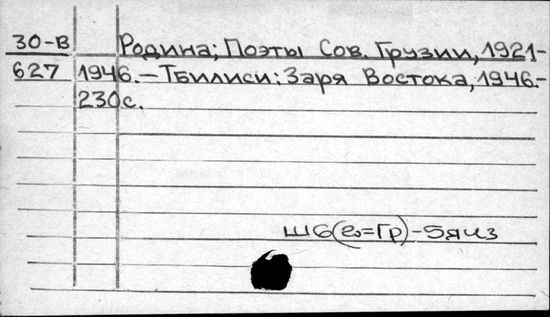 30-В Родина; Поэты Сов. Грузии, 1921-
627 1946.—Тбилиси: Заря Востока, 1946.-
230с.
Ш6(2=Гр)-5я43